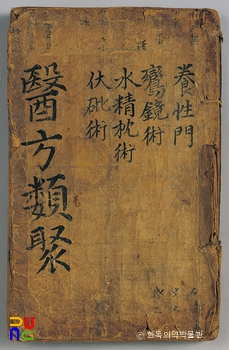 養性門
鸞鏡術
水精枕術
伏砒術
醫方類聚
ⓒ 한독의약박물관